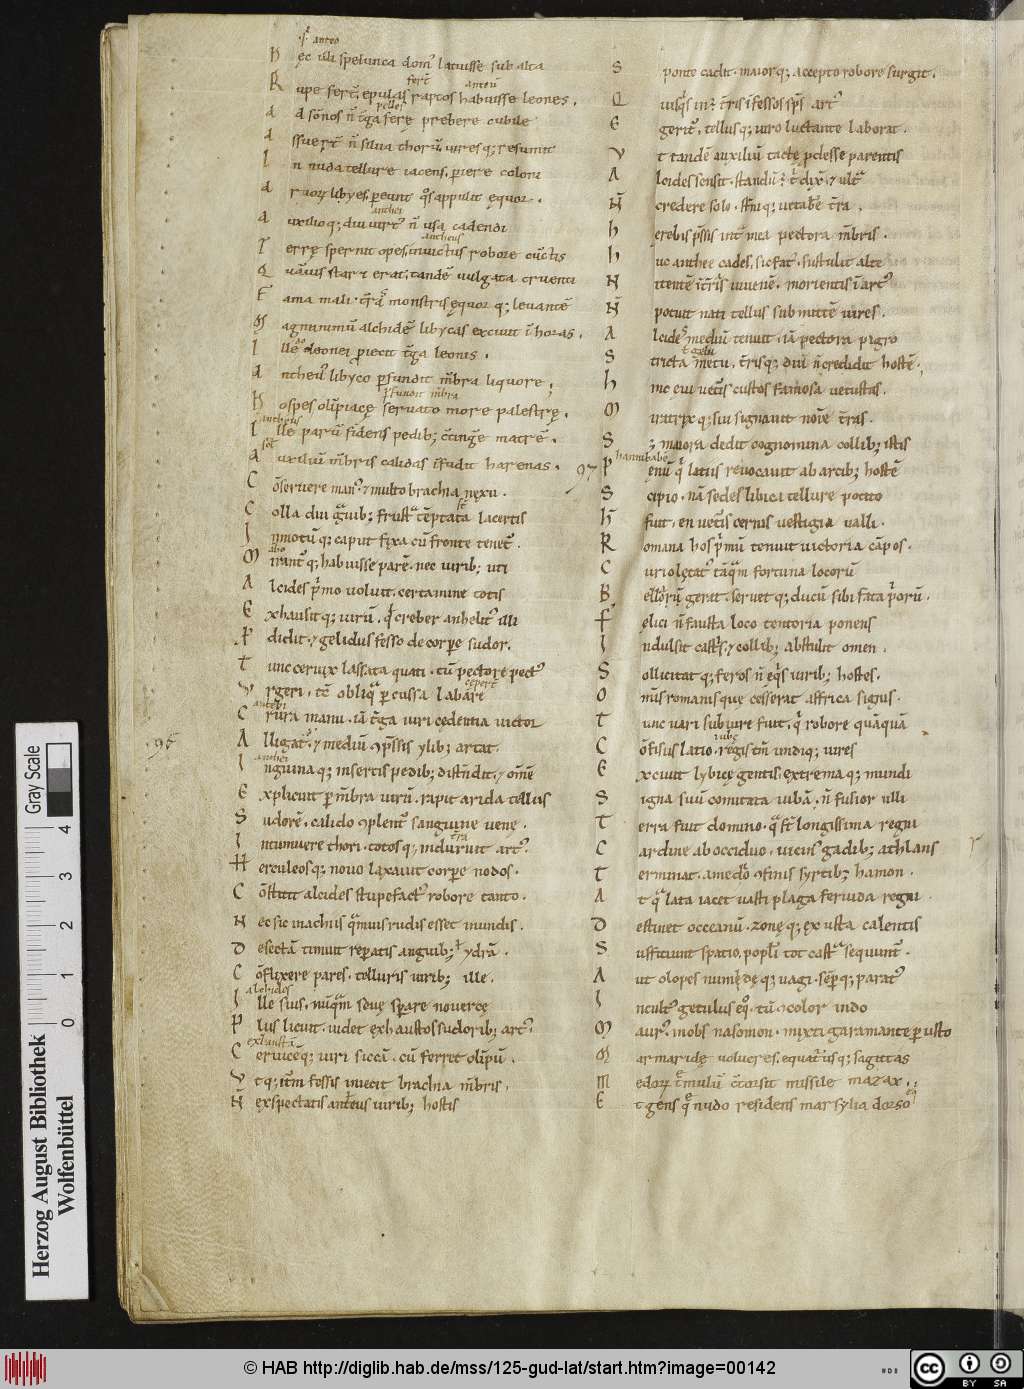 .ſ. anteo
Hęc illi spelunca dom᷒ latuisse sub alta
ferē anteū
Rupe ferē, epulas raptos habuisse leones.
pelles
Ad sōnos n̄ t̄ga ferę prebere cubile
Assuerē n̄ silua thorū, uires q; resumit
In nuda tellure iacens, periere coloni
Aruoꝝ libyes, pereunt q͛s appulit ęquor.
anthei
Auxilioq; diu uirt᷒ n̄ usa cadendi
antheus
Terrę spernit opes, inuictus robore cūctis
Quāuis staret erat, tandē uulgata cruenti
Fama mali t̄ras monstris ęquor q; leuantē
Magnanimū alchidē libycas exciuit ī horas.
Ille cleonei piecit t̄ga leonis.
Anthe᷒ libyco pfundit mēbra liquore;
pfundit mēbra
Hospes olīpiacę seruato more palestrę.
antheus
Ille parū fidens pedib; c̄tinḡe matrē.
Auxiliū mēbris calidas īfudit harenas.
Cōseruere man᷒ & multo brachia nexu.
Colla diu grauib; frustra tēptata lacertis
Inmotū q; caput fixa cū fronte tenet᷒.
Mirant᷒ q; habuisse parē. nec uirib; uti
Alcides p̍mo uoluit certamine totis
Exhausit q; uirū. qd creber anhelit᷒ illi
Pdidit. & gelidus fesso de corpe sudor.
Tunc ceruix lassata quati. tū pectore pect᷒
ceperē
Vrgeri, tc̄ obliqua percussa labare
antei
Crura manu. iā t̄ga uiri cędentia uictor
95
Alligat. & mediū ꝯp̄ssis ylib; artat.
anthei
Inguina q; insertis pedib; distēdit. & omē
Explicuit p mēbra uirū. rapit arida tellus
Sudorē. calido ꝯplent᷒ sanguine uenę.
t̄ra
Intumuere thori. totosq; indurauit art᷒.
Herculeosq; nouo laxauit corpe nodos.
Cōstitit alcides stupefact᷒ robore tanto.
Nec sic inachiis quāuis rudis esset in undis.
Desectā timuit reparatis anguib; ydrā.
Cōflixere pares. telluris uirib; ille.
alcides
Ille suis. nūquā sęuę sperare nouercę
Plus licuit. uidet exhaustos sudorib; art᷒.
Ceruicēq; uiri siccā. cū ferret olīpū.
Vt q; itm̄ fessis iniecit brachia mēbris.
N̄ expectatis anteus uirib; hostis
Sponte cadit. maiorq; accepto robore surgit.
Quisq͛s inē t̄ris ī fessos sp̄s art᷒
Egerit᷒, tellusq; uiro luctante laborat.
Vt tandē auxiliū tactę pdesse parentis
Alcides sensit. standū ē t̍ dix̄. & ult̄a
N̄ credere solo. sterniq; uetabere t̄ra.
Herebis p̄ssis int̄ mea pectora mēbris.
Huc anthee cades, sic fat᷒. sustulit alte
Nitentē ī t̄ris iuuenē. morientis ī art᷒
N̄ potuit nati tellus submittē uires.
Alcides mediū tenuit, iā pectora pigro
t̄ gelu
Stricta metu, t̄risq; diu n̄ credidit hostē.
Hinc eui uet̄is custos famosa uetustas.
Miratrix q; sui signauit noīe t̄ras.
Sꝫ maiora dedit cognomina collib; istis
hannibalē
97 Penū q̍ latiis reuocauit ab arcib; hostē
Scipio. nā sedes libica tellure potito
Hęc fuit, en uet̄is cernis uestigia ualli.
Romana hos p̍mū tenuit uictoria cāpos.
Curio lętat᷒ tāquā fortuna locorū
Bellorū gerat. seruet q; ducū sibi fata priorū.
Felici n̄ fausta loco tentoria ponens
Indulsit cast̄s. & collib; abstulit omen.
Sollicitat q; feros n̄ eq͛s uirib; hostes.
Omīs romanis quę cesserat affrica signis.
Tunc uari sub iure fuit, q̍ robore quāquā
iubę
Cōfisus latio. regis tm̄ undiq; uires
Exciuit lybicę gentis. extrema q; mundi
Signa suū comitata iubā. n̄ fusior ulli
Terra fuit domino. qua st̄ longissima regni
Cardine ab occiduo. uicin᷒ gadib; athlans
Terminat. a medio ꝯfinis syrtib; hamon.
At qua lata iacet uasti plaga feruida regni.
Destinet occeanū. zonę q; exusta calentis
Sufficiunt spatio, popl̄i tot castra sequunt᷒.
Autololes numędę q; uagi. sep q; parat᷒
Incult᷒ getulus eqͦ. tū ꝯcolor indo
Maur᷒. inobs nasomon. mixti garamante p usto
Marmaridę uolucres. equat̄ us q; sagittas
Medoꝝ tremulū c̄ torsit missile mazax.
Et gens quę nudo residens marsylia dorso